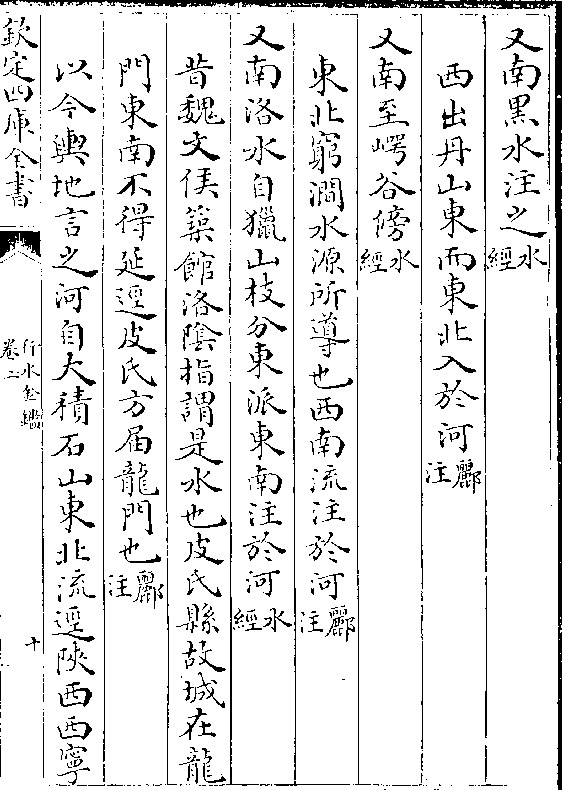 又南黑水注之水經
西出丹山東而東北入於河酈注
又南至崿谷傍水經
東北窮澗水源所導也西南流注於河酈注
又南洛水自獵山枝分東派東南注於河水經
昔魏文侯築館洛陰指謂是水也皮氏縣故城在龍
門東南不得延逕皮氏方屆龍門也酈注
以今輿地言之河自大積石山東北流逕陝西西寧
欽定四庫全書
行水金鑑
卷二
十